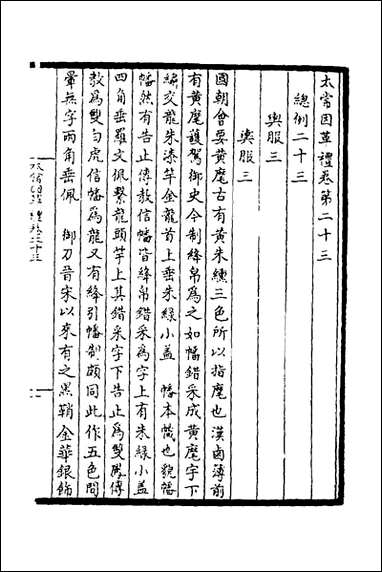 太常因革禮卷第二十三
總例二十三
輿服三
輿服三
國朝會要黄麾古有黄朱纁三色所以指麾也漢鹵簿前
有黄麾護駕御史今制絳帛為之如幡錯采成黄麾字下
繡交龍朱漆竿金龍首上垂朱綠小蓋 幡本幟也貌幡
幡然有告止傳教信幡皆絳帛錯采為字上有朱綠小蓋
四角垂羅文佩繫龍頭竿上其錯采字下告止為雙鳳傳
教為雙白虎信幡為龍又有絳引幡制頗同此作五色間
暈無字兩角垂佩 御刀晉宋以來有之黑鞘金華銀飾
太常因革禮卷二十三
一